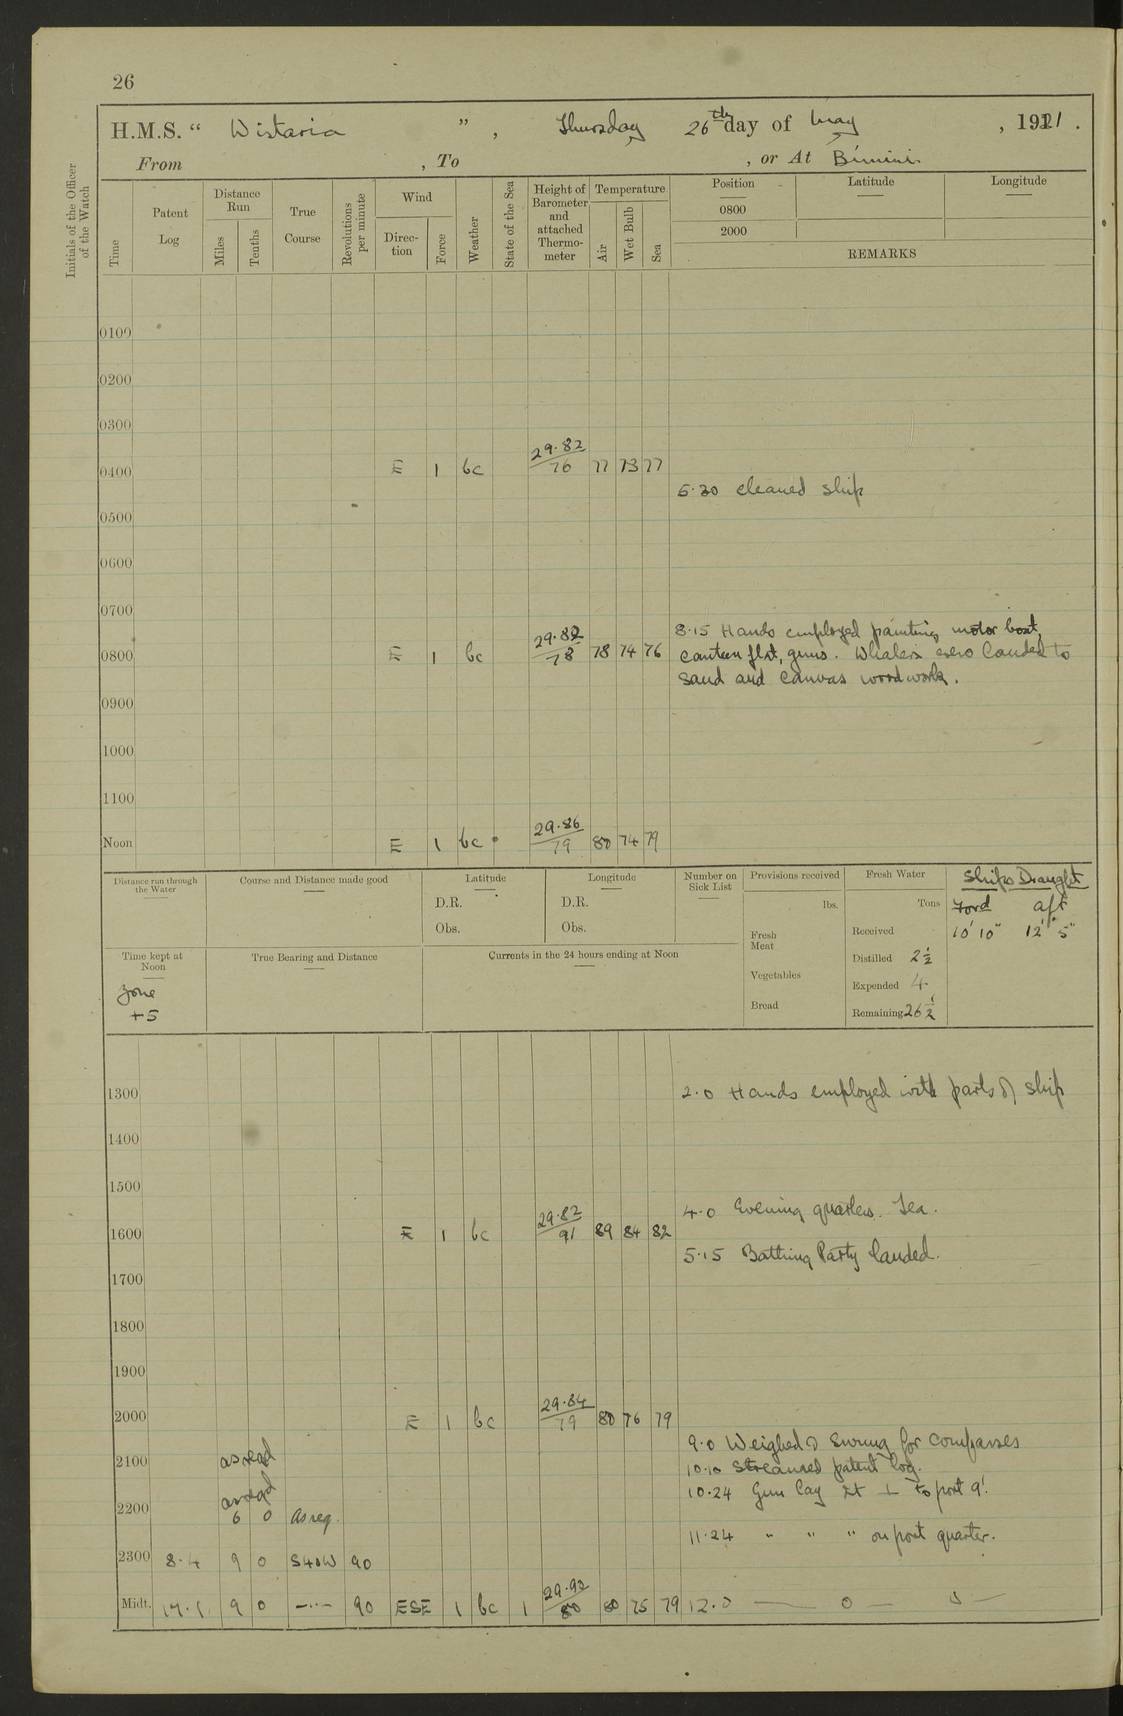 26
H.M.S. “ Wistaria ” , Thursday 26th day of May , 1921 .
From , To , or At Bimini.
Initials of the Officer of the Watch
Time
Patent Log
Distance Run
Miles
Tenths
True Course
Revolutions per minute
Wind
Direc-tion
Force
Weather
State of the Sea
Height of Barometer and attached Thermo-meter
Temperature
Air
Wet Bulb
Sea
Position Latitude Longitude
0800
2000
REMARKS
0100
0200
0300
0400 E 1 bc 29.82/76 77 73 77
5.30 cleaned ship
0500
0600
0700
8.15 Hands employed painting motor boat,
0800 E 1 bc 29.82/78 78 74 76 canteen flat, guns. Whalers landed to
sand and canvas woodwork.
0900
1000
1100
Noon E 1 bc 29.86/79 80 74 79
Distance run through the Water
Course and Distance made good
Latitude
D.R.
Obs.
Longitude
D.R.
Obs.
Number on Sick List
Provisions received
lbs.
Fresh Meat
Vegetables
Bread
Fresh Water
Tons
Received
Distilled 2½
Expended 4
Remaining 26½
Ships Draught
Ford aft
10' 10" 12' 5"
Time kept at Noon
Zone
+5
True Bearing and Distance
Currents in the 24 hours ending at Noon
1300 2.0 Hands employed with parts of ship
1400
1500
4.0 Evening quarters. Tea.
1600 E 1 bc 29.82/91 89 84 82
5.15 Bathing Party landed.
1700
1800
1900
2000 E 1 bc 29.84/79 80 76 79
9.0 Weighed & swung for compasses
2100 as read
10.10 Streamed patent log.
as read
10.24 Gun Cay Lt ⊥ to port 9'.
2200 6 0 as req.
11.24 " " " on port quarter.
2300 8.4 9 0 S40W 90
Midt. 17.1 9 0 —..— 90 ESE 1 bc 1 29.92/80 80 75 79 12.0